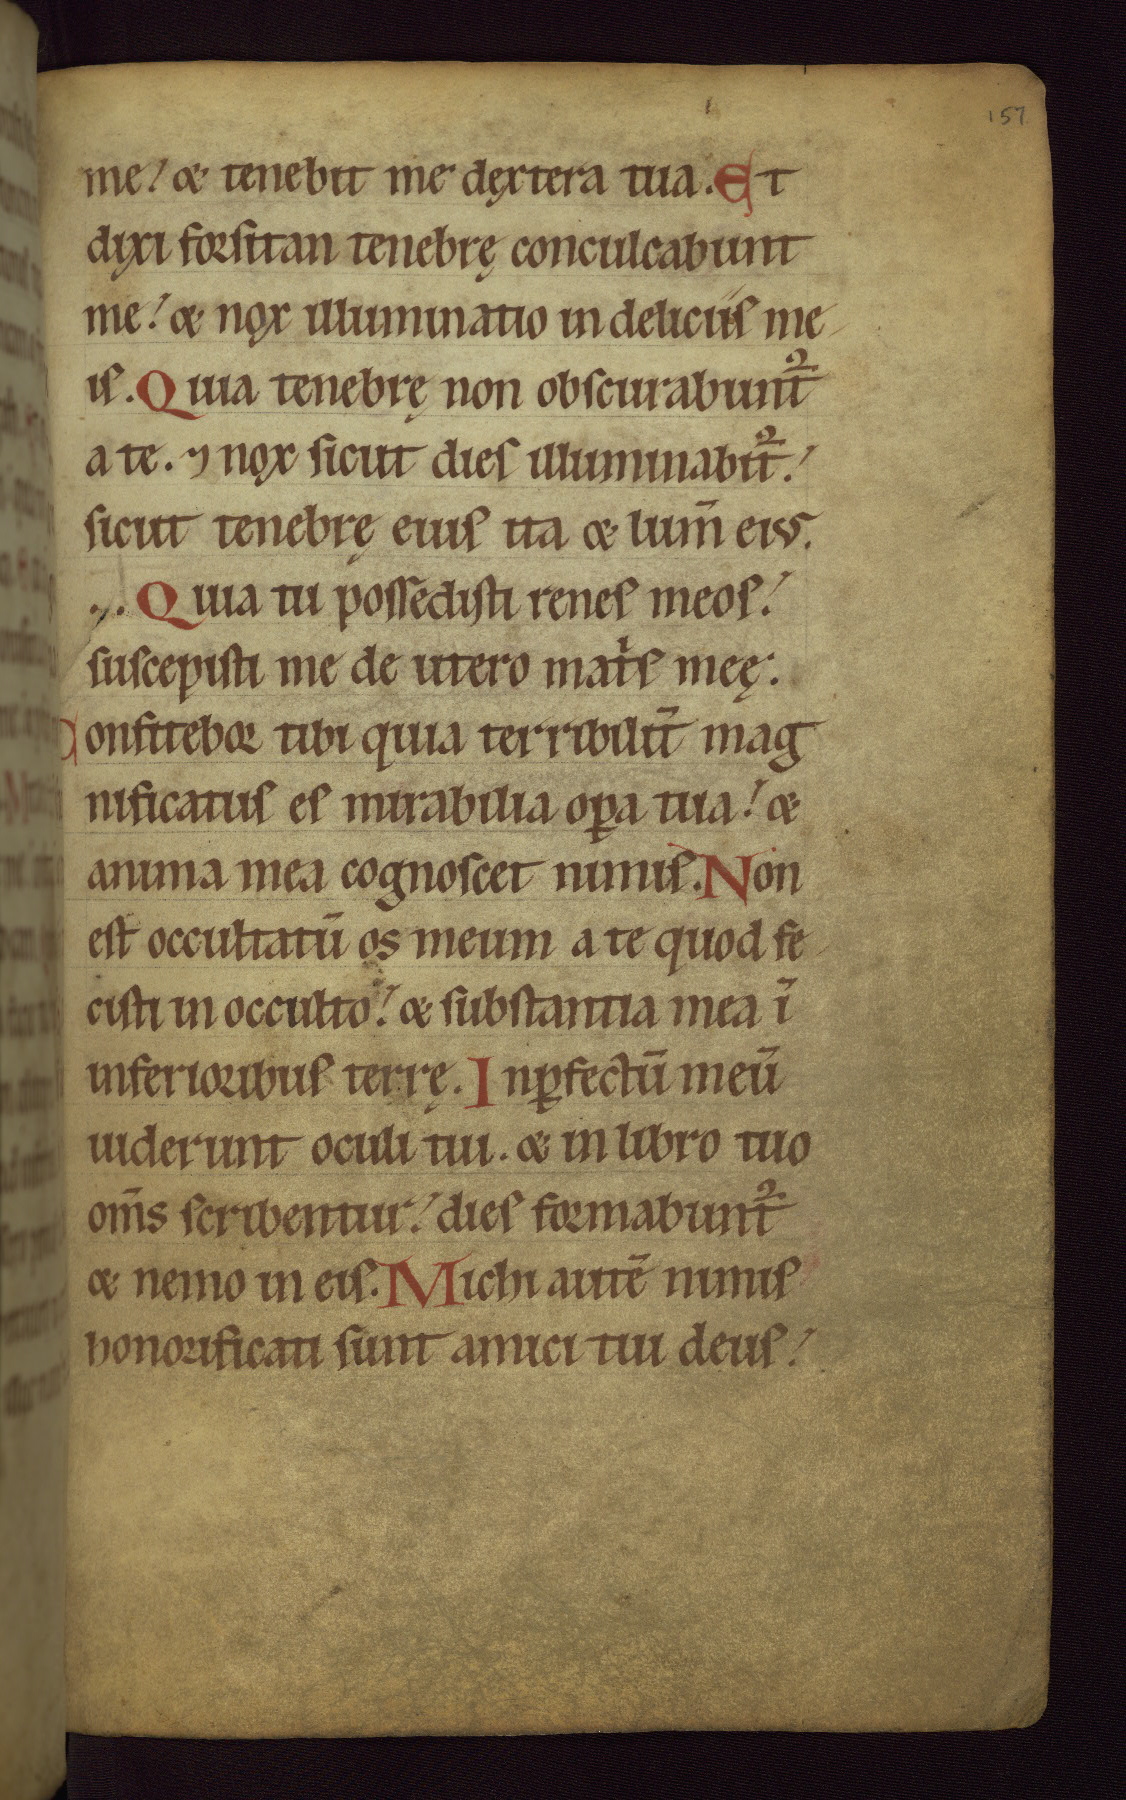 157
me! & tenebit me dęxtera tua. Et
dixi forsitan tenebrę conculcabunt
me! & nox illuminatio in deliciis me
is. Quia tenebrę non obscurabunt᷑
a te. ⁊ nox sicut dies illuminabit᷑!
sicut tenebrę eius ita & lum̄ eius.
Quia tu possedisti renes meos!
suscepisti me de utero matͥs meę.
Confitebor tibi quia terribilit̄ mag
nificatus es mirabilia oꝑa tua! &
anima mea cognoscet nimis. Non
est occultatū os meum a te quod fe
cisti in occulto! & substantia mea ī
inferioribus terrę. Inꝑfectū meū
uiderunt oculi tui. & in libro tuo
om̄s scribentur! dies formabunt᷑
& nemo in eis. Michi autē nimis
honorificati sunt amici tui deus!